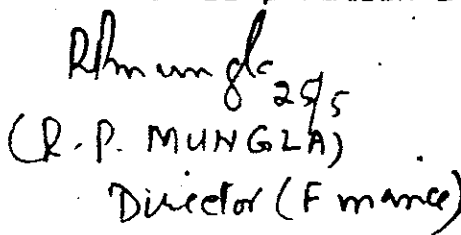 RPmungla 25/5
(R.P. MUNGLA)
Director (Finance)